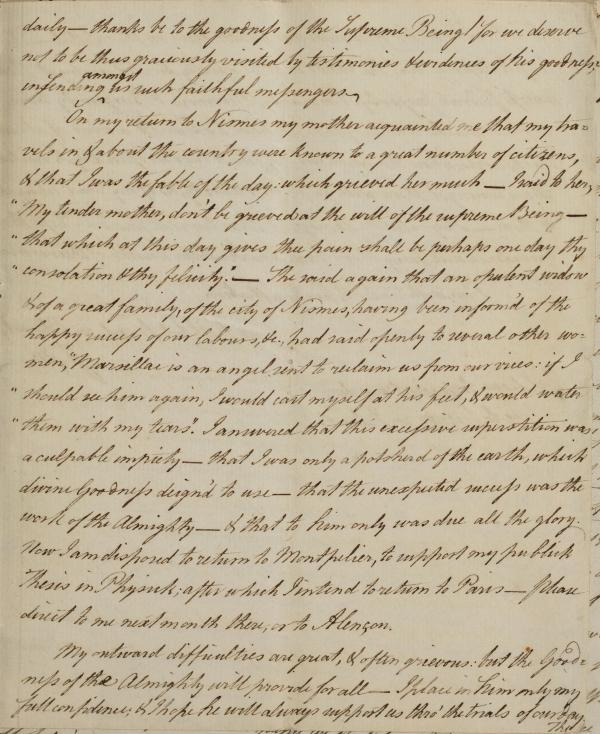 daily — thanks be to the goodness of the Supreme Being! for we deserve
not to be thus graciously visited by testimonies & evidences of his goodness,
in sending amongst us such faithful messengers.
On my return to Nismes my mother acquainted me that my tra-
vels in & about the country were known to a great number of citizens,
& that I was the fable of the day: which grieved her much — I said to her,
"My tender mother, don't be grieved at the will of the supreme Being —
"that which at this day gives thee pain shall be perhaps one day thy
"consolation & thy felicity." — She said again that an opulent widow
& of a great family, of the city of Nismes, having been inform'd of the
happy success of our labours, &c., had said openly to several other wo-
men, "Marsillac is an angel sent to reclaim us from our vices: if I
"should see him again, I would cast myself at his feet, & would water
"them with my tears". I answered that this excessive superstition was
a culpable impiety — that I was only a potsherd of the earth, which
divine Goodness deign'd to use — that the unexpected success was the
work of the Almighty — & that to him only was due all the glory.
Now I am disposed to return to Montpelier, to support my publick
Thesis in Physick; after which I intend to return to Paris — please
direct to me next month there, or to Alençon.
My outward difficulties are great, & often grievous: but the Good-
ness of the Almighty will provide for all — I place in Him only my
full confidence; & I hope he will always support us thro' the trials of our day.